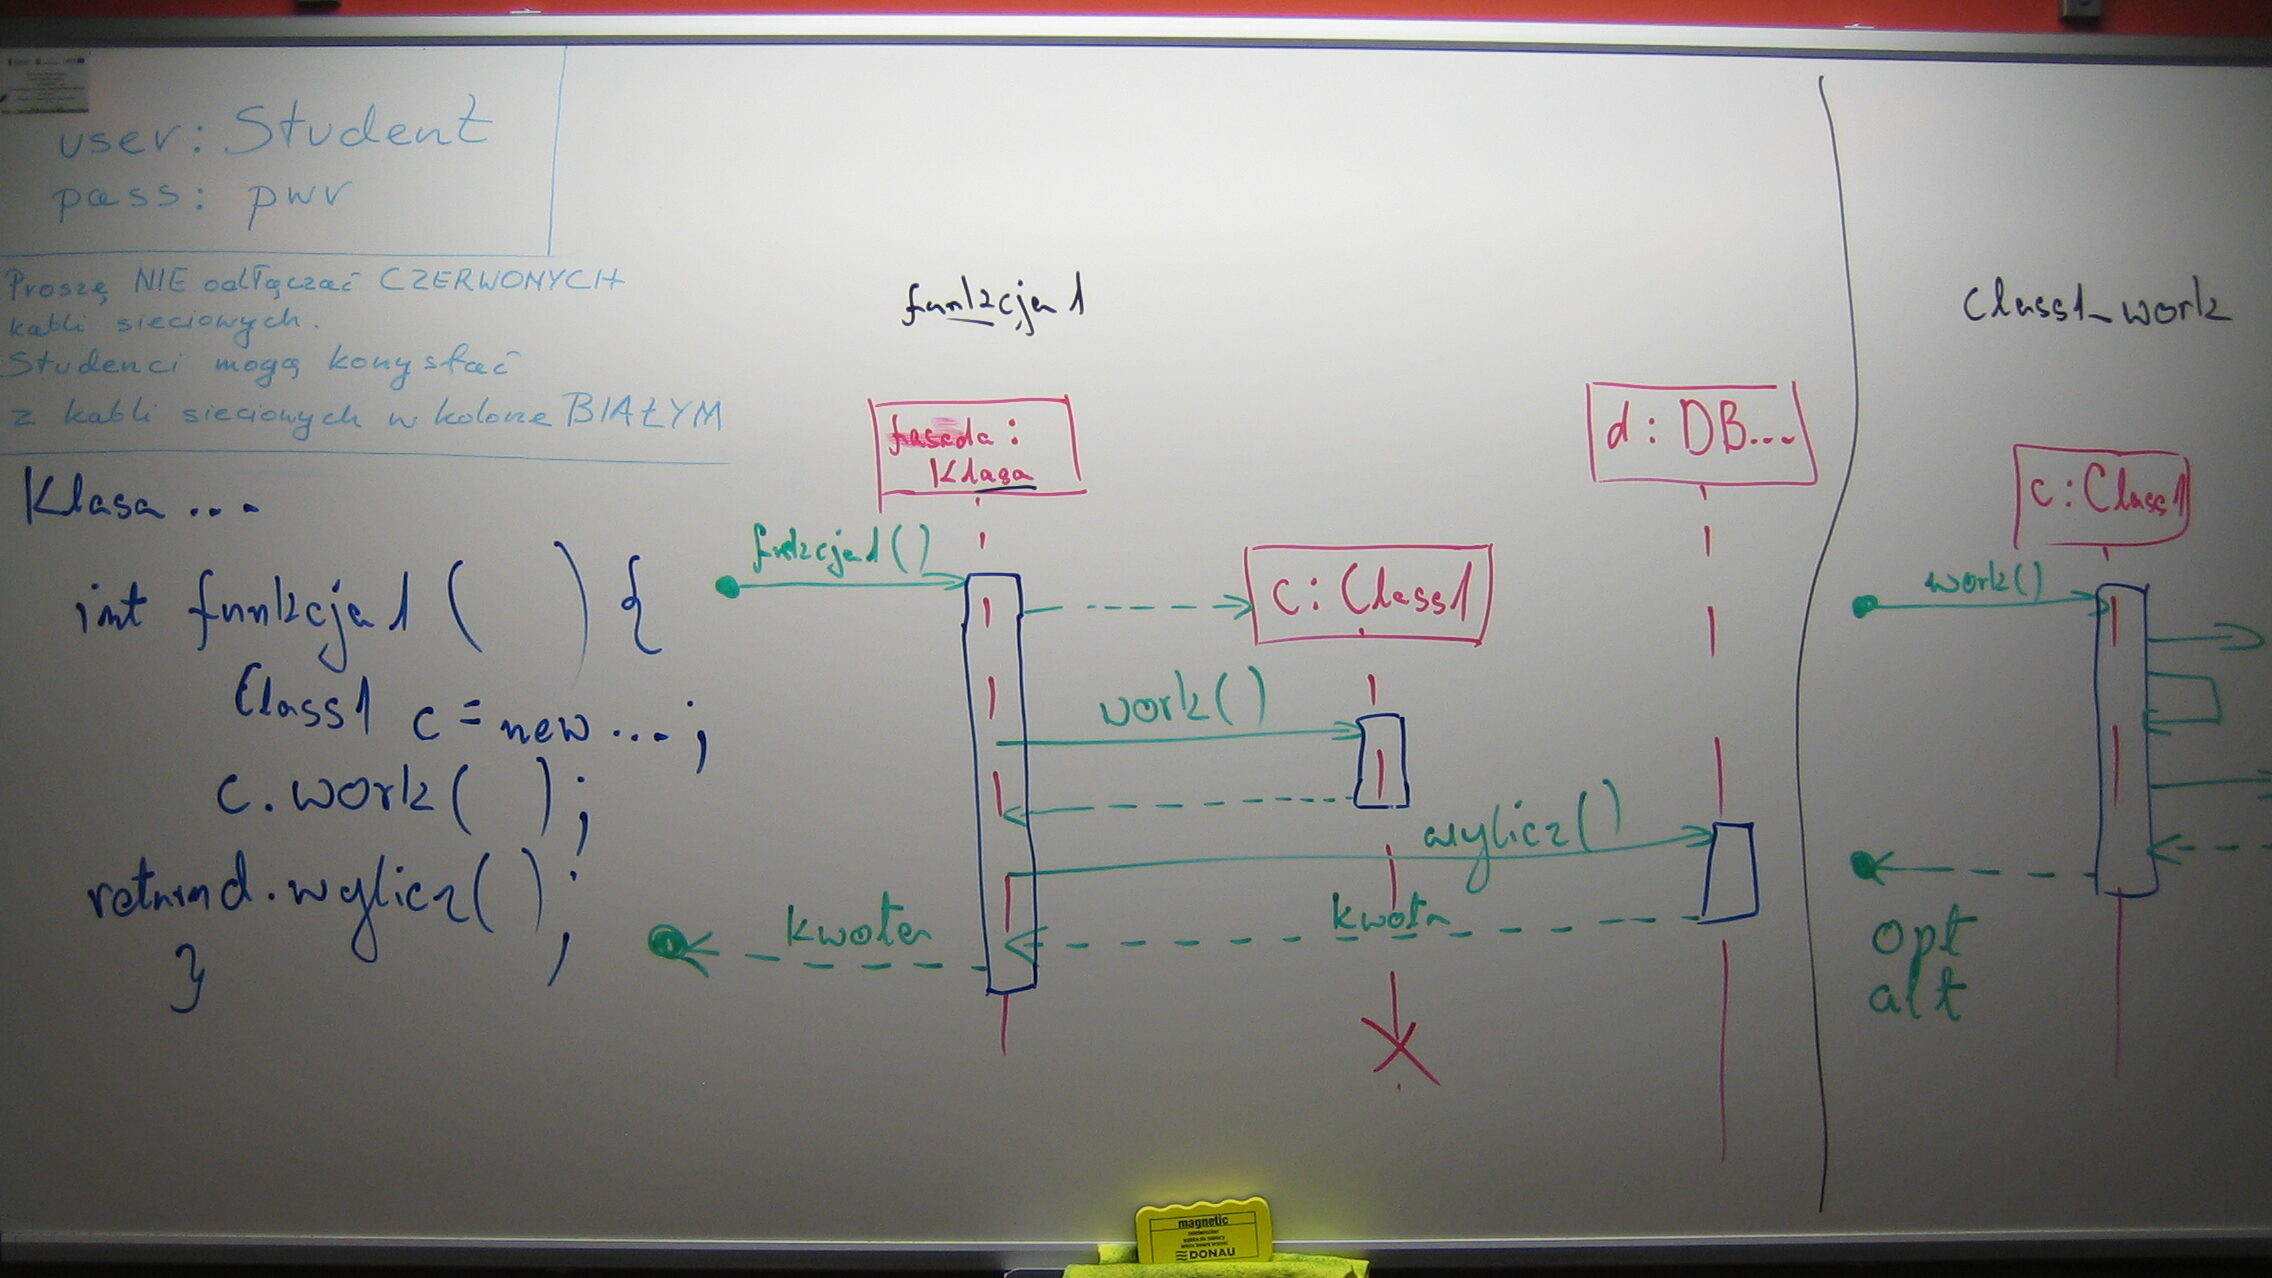 user: Student
pass: pwr
Proszę NIE odłączać CZERWONYCH
kabli sieciowych.
Studenci mogą korzystać
z kabli sieciowych w kolorze BIAŁYM
Klasa ...
int funkcja1 ( ) {
Class1 c = new ... ;
c.work( ) ;
return d.wylicz( ) ;
}
funkcja1
fasada :
Klasa
d : DB...
funkcja1 ( )
c : Class1
work( )
wylicz( )
kwota
kwota
Class1_work
c : Class1
work( )
opt
alt
magnetic
DONAU